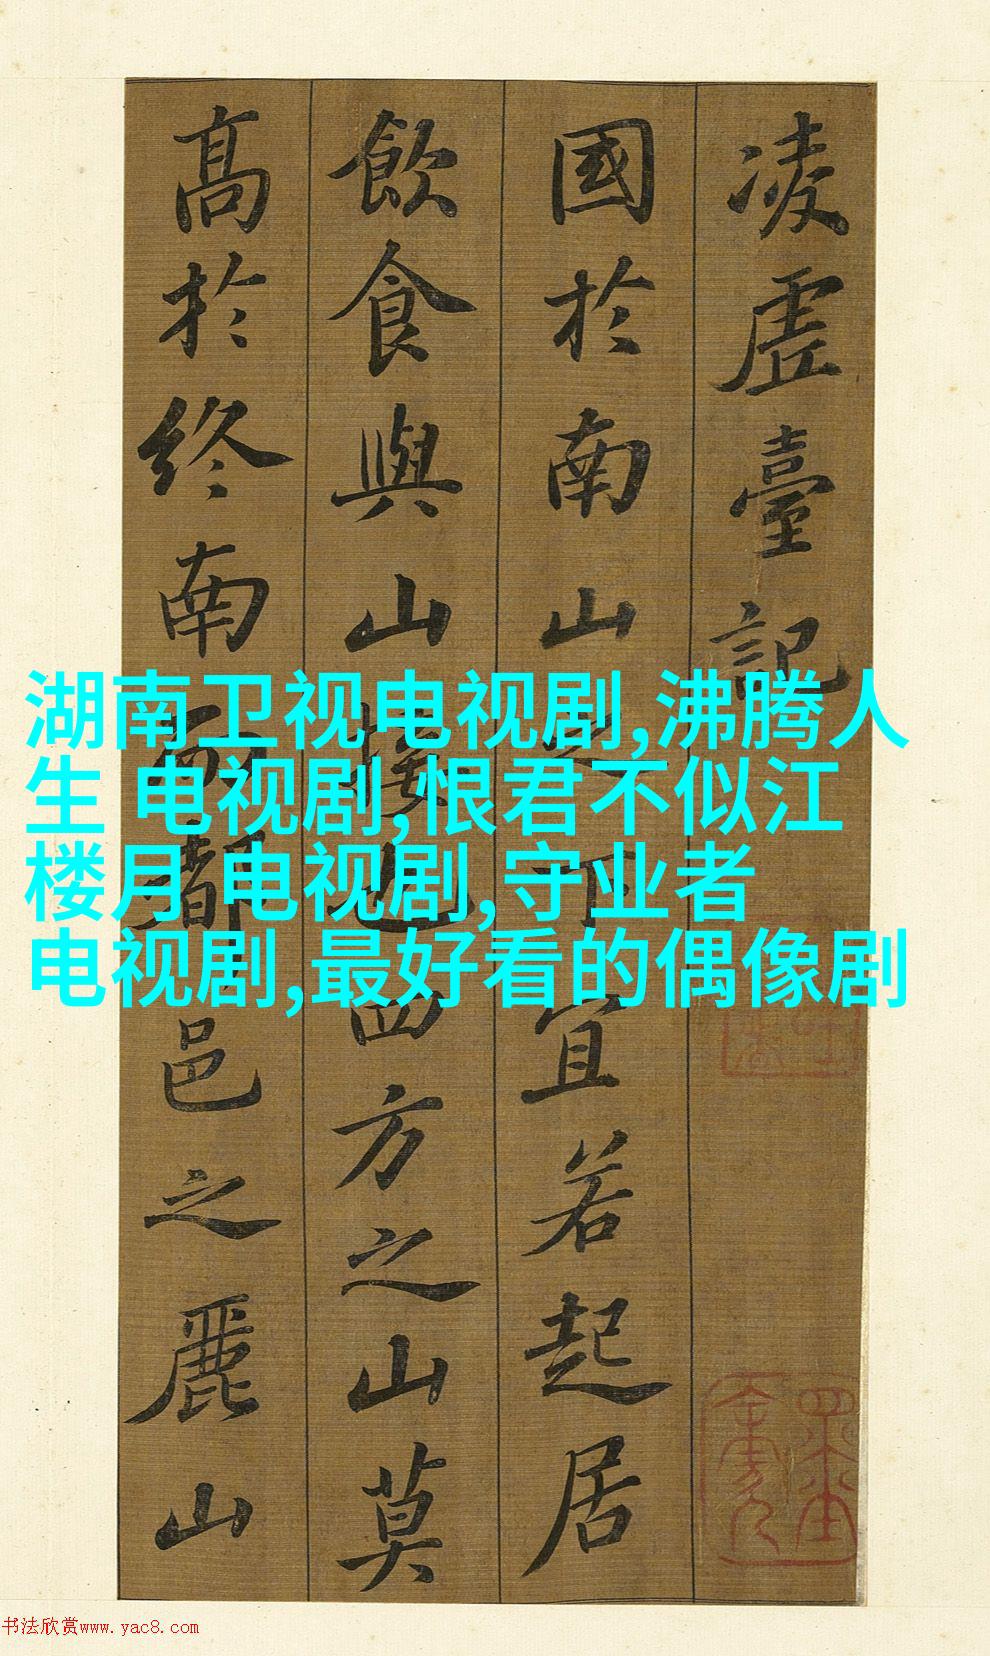 凌虛臺記
國於南山之下宜若起居
飲食與山接也四方之山莫
高於終南而都邑之麗山
湖南卫视电视剧,沸腾人
生 电视剧,恨君不似江
楼月 电视剧,守业者
电视剧,最好看的偶像剧
书法欣赏www.yac8.com